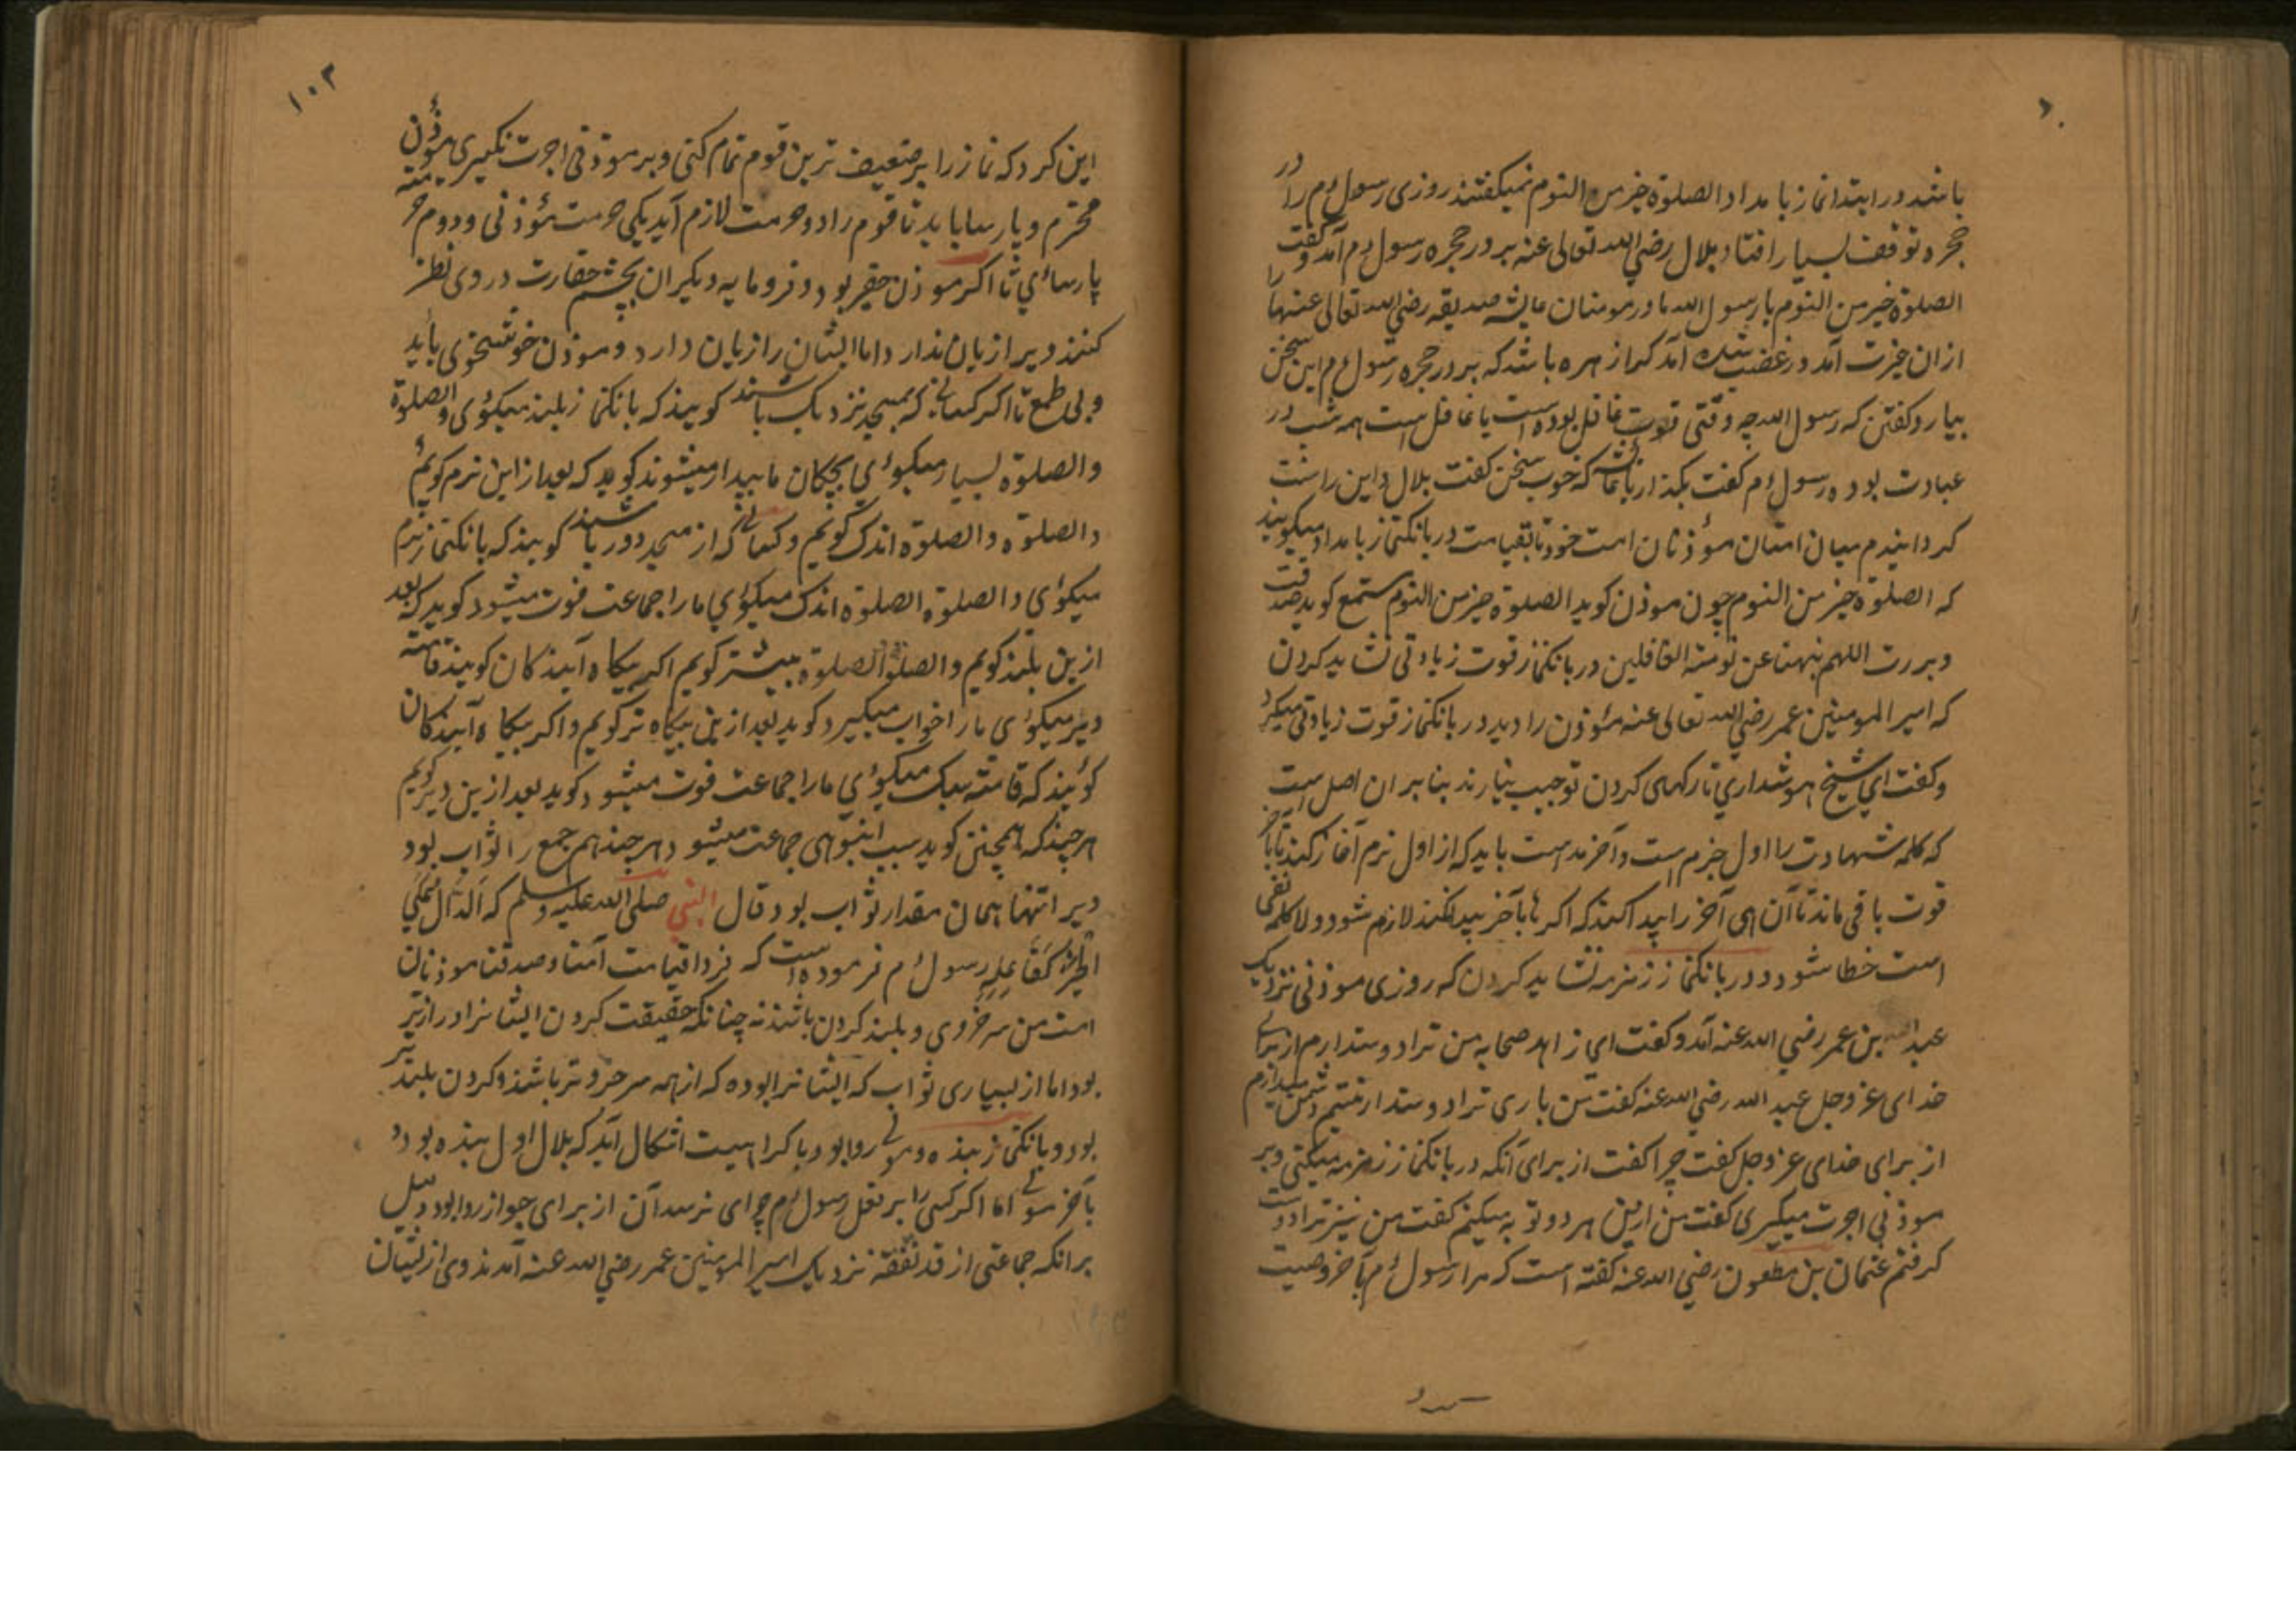 باشد در ابتدا نماز بامداد الصلوة خیر من النوم نمیکفتند روزی رسول م را در
حجره توقف بسیار افتاد بلال رضی الله تعالی عنه بر در حجره رسول م آمد و کفت
الصلوة خیر من النوم یا رسول الله مادر مومنان عایشه صدیقه رضی الله تعالی عنها را
ازان غیرت آمد در غضب شد آمد که از هره باشد که بر در حجره رسول م این سخن
بیارد کفتن که رسول الله چه وقتی غافل بوده است یا غافل است همه شب در
عبادت بوده رسول م کفت بکذار یا عایشه که خوب سخن کفت بلال و این را سنت
کردانیدم میان امتان مؤذنان امت خود تا بقیامت در بانکنماز بامداد میکویند
که الصلوة خیر من النوم چون موذن کوید الصلوة خیر من النوم مستمع کوید صدقت
و بررت اللهم نبهنا عن نومة الغافلین در بانکنماز قوت زیادتی نشاید کردن
که امیر المومنین عمر رضی الله تعالی عنه مؤذن را دید در بانکنماز قوت زیادتی میکرد
و کفت ای شیخ هوشداری تا رکهای کردن تو بنا بر ان اصل است
که کلمه شهادت را اول جزم است و آخر مد است باید که از اول نرم آغاز کند تا بآخر
قوت باقی ماند تا آن های آخر را پیدا کند که اگر ها بآخر پیدا نکند لازم شود و لا کلمه نفی
است خطا شود و در بانکنماز زمزمه نشاید کردن که روزی موذنی نزدیک
عبد الله بن عمر رضی الله عنه آمد و کفت ای زاهد صحابه من ترا دوستدارم از برای
خدای عز و جل عبد الله رضی الله عنه کفت من باری ترا دوستدار نیستم دشمن میدارم
از برای خدای عز و جل کفت چرا کفت از برای آنکه در بانکنماز زمزمه میکنی و بر
موذنی اجرت میکیری کفت من ازین هر دو توبه میکنم کفت من نیز ترا دوست
کرفتم عثمان بن مظعون رضی الله عنه کفته است که مرا رسول م بآخر وصیت
۱۰۳
این کرد که نماز را بر ضعیف ترین قوم تمام کنی و بر موذنی اجرت نکیری مؤذن
محترم و پارسا باید تا قوم را دو حرمت لازم آید یکی حرمت مؤذنی و دوم حرمت
پارسائی تا اکر موذن حقیر بود و فرومایه دیکران بچشم حقارت در وی نظر
کنند ویرا زیان ندارد اما ایشان را زیان دارد و موذن خوشخوی باید
و بی طمع تا اکر کسانی که بمسجد نزدیک باشند کویند که بانکنماز بلند میکوئی و الصلوة
والصلوة بسیار میکوئی بچکان ما بیدار میشوند کوید که بعد از این نرم کویم
و الصلوة و الصلوة اندک کویم و کسانی که از مسجد دور باشند کویند که بانکنماز نرم
میکوئی و الصلوة الصلوة اندک میکوئی ما را جماعت فوت میشود کوید که بعد
ازین بلند کویم و الصلوة الصلوة بیشتر کویم اکر بیکاه آیندکان کویند قامت
دیر میکوئی ما را خواب میکیرد کوید بعد ازین بیکاه تر کویم و اکر بیکاه آیندکان
کویند که قامت سبک میکوئی ما را جماعت فوت میشود کوید بعد ازین دیر کویم
هر چند که همچنین کوید سبب انبوهی جماعت میشود هر چند هم جمع را ثواب بود
ویرا تنها همان مقدار ثواب بود قال النبی صلی الله علیه وسلم که الدال علی
الخیر کفاعله رسول م فرموده است که فردا قیامت آمنا و صدقنا موذنان
امت من سرخروی و بلند کردن باشند نه چنانکه حقیقت کردن ایشانرا درازتر
بود اما از بسیاری ثواب که ایشانرا بوده که از همه سرخروتر باشند و کردن بلندتر
بود و بانکنماز بنده و مولی روا بود با کراهیت اشکال آید که بلال اول بنده بود و
بآخر مولی اما اکر کسی را بر فعل رسول م چرای نرسد آن از برای جواز روا بود دلیل
برانکه جماعتی از نزدیک امیر المومنین عمر رضی الله عنه آمدند وی ازیشان